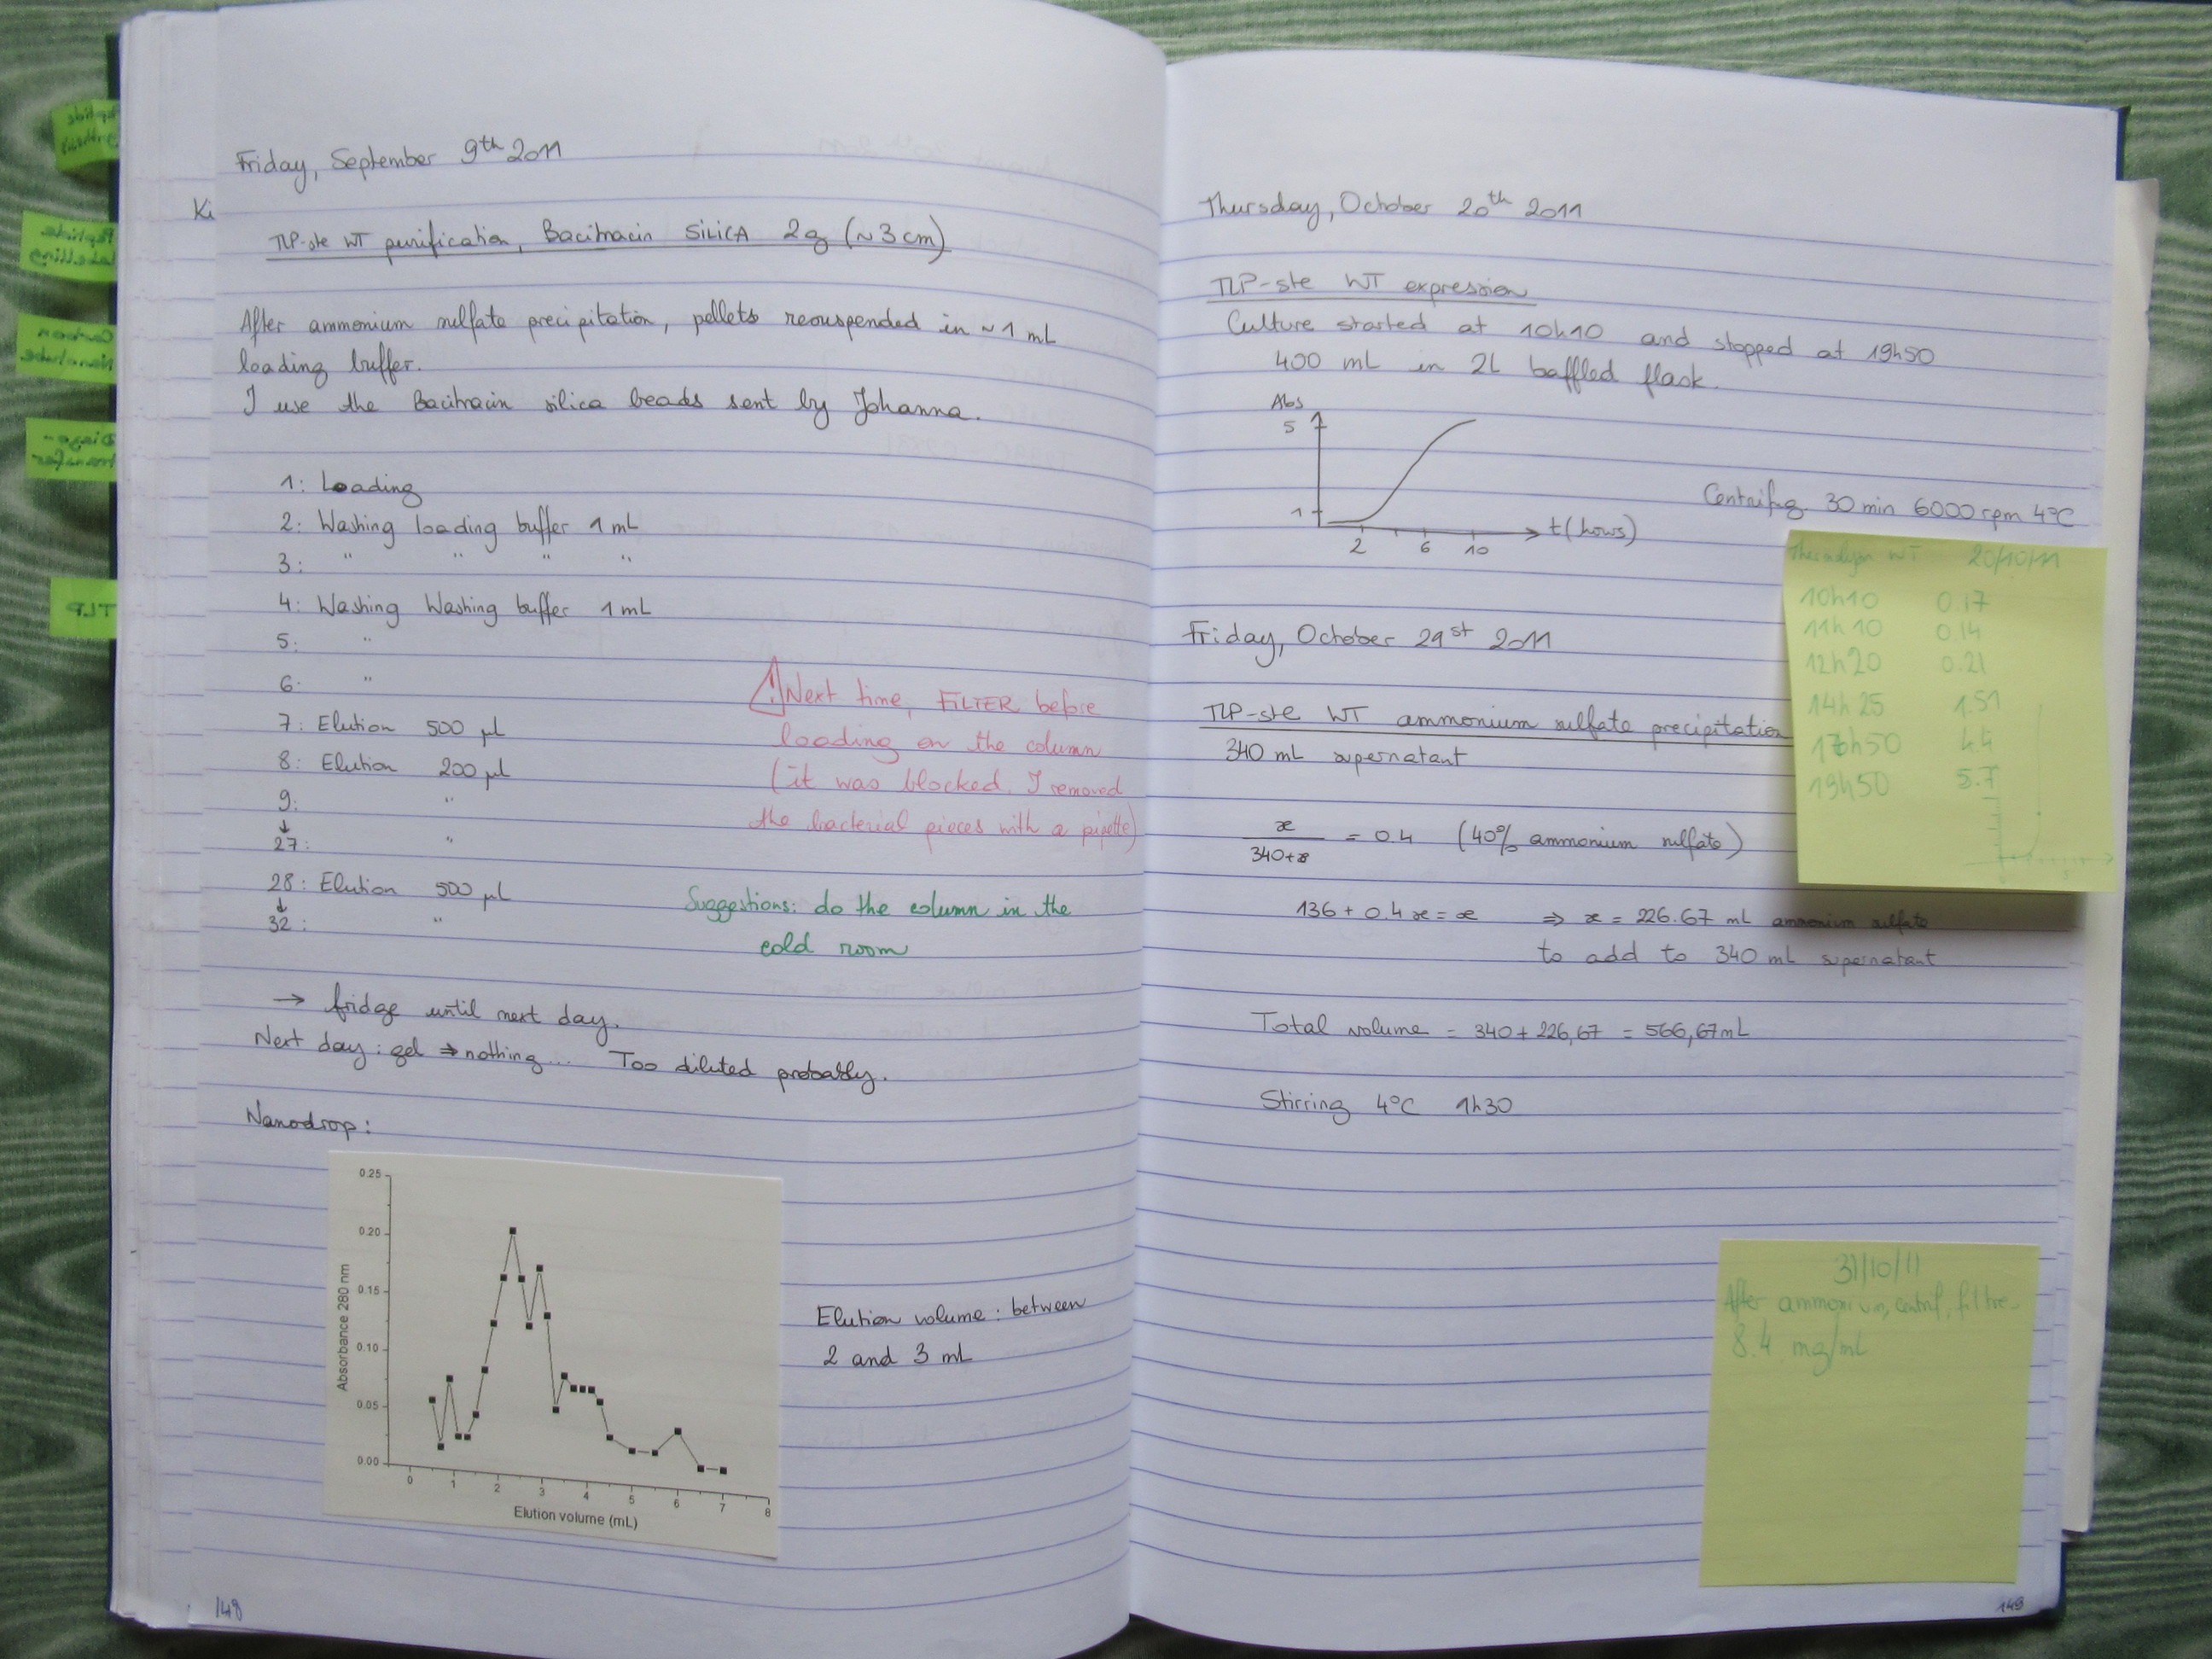 Friday, September 9th 2011
Ki
TLP-ste WT purification, Bacitracin SILICA 2g (~3 cm)
After ammonium sulfate precipitation, pellets resuspended in ~1 mL
loading buffer.
I use the Bacitracin silica beads sent by Johanna.
1: Loading
2: Washing loading buffer 1 mL
3: " " " "
4: Washing Washing buffer 1 mL
5: "
6: "
7: Elution 500 µl
8: Elution 200 µl
9: "
↓
27: "
28: Elution 500 µl
↓
32: "
⚠ Next time, FILTER before
loading on the column
(it was blocked. I removed
the bacterial pieces with a pipette)
Suggestions: do the column in the
cold room
→ fridge until next day.
Next day: gel ⇒ nothing... Too diluted probably.
Nanodrop:
0.25
0.20
0.15
0.10
0.05
0.00
Absorbance 280 nm
0 1 2 3 4 5 6 7 8
Elution volume (mL)
Elution volume: between
2 and 3 mL
148
Peptide
Peptide
labelling
Carbon
Nanotube
Diazo-
transfer
TLP
Thursday, October 20th 2011
TLP-ste WT expression
Culture started at 10h10 and stopped at 19h50
400 mL in 2L baffled flask.
Abs
5
1
2 6 10
t(hours)
Centrifug. 30 min 6000 rpm 4°C
WT 20/10/11
10h10 0.17
11h10 0.14
12h20 0.21
14h25 1.51
17h50 4.4
19h50 5.7
Friday, October 21st 2011
TLP-ste WT ammonium sulfate precipitation
340 mL supernatant
x/(340+x) = 0.4 (40% ammonium sulfate)
136 + 0.4x = x ⇒ x = 226.67 mL ammonium sulfate
to add to 340 mL supernatant
Total volume = 340 + 226,67 = 566,67 mL
Stirring 4°C 1h30
31/10/11
After ammonium, centrif, filtre
8.4 mg/mL
149